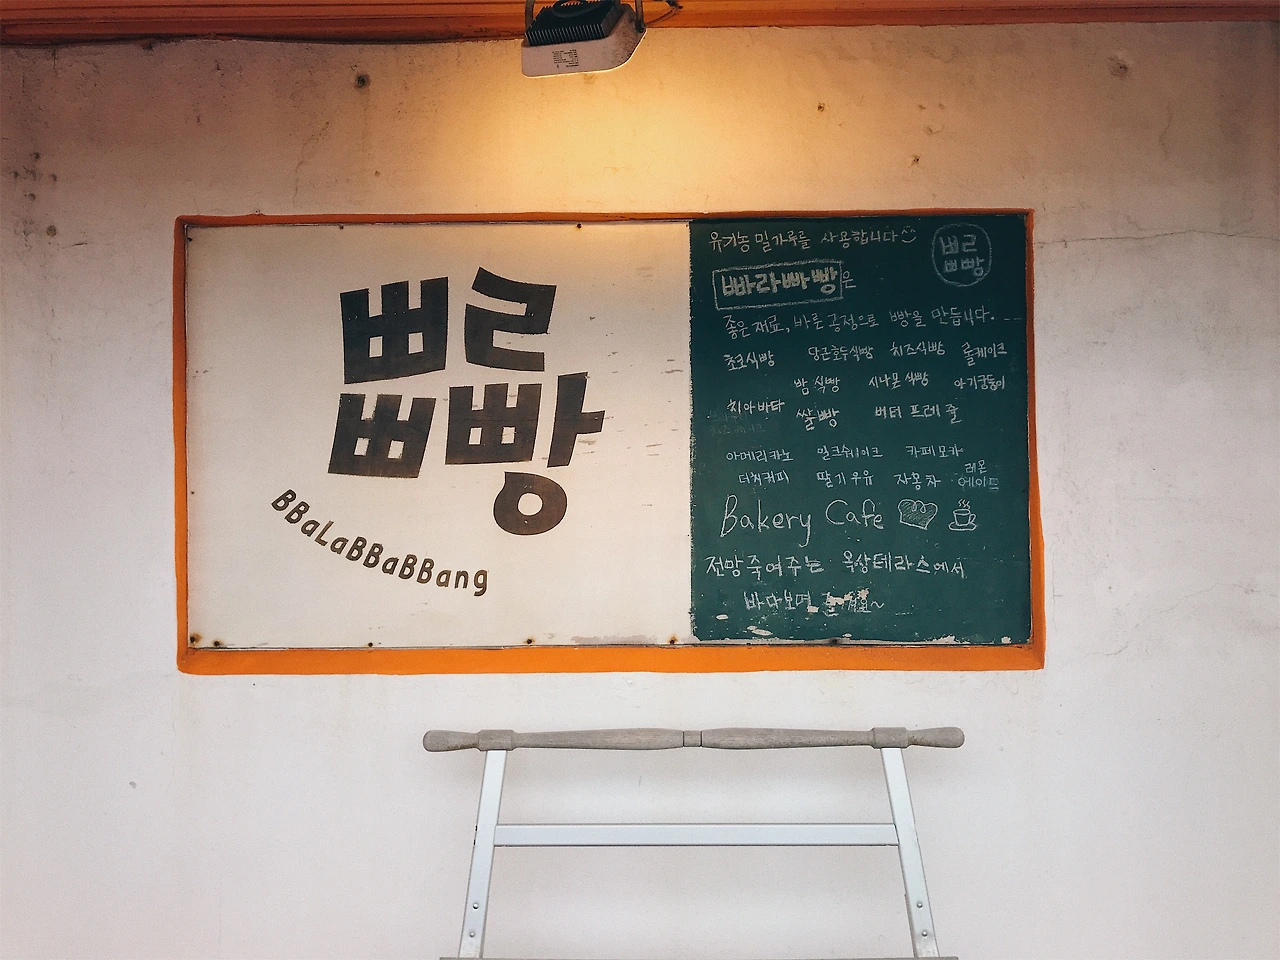 빠라
빠빵
BBaLaBBaBBang
유기농 밀가루를 사용합니다
빠라
빠빵
빠라빠빵은
좋은 재료, 바른 공정으로 빵을 만듭니다.
초코식빵 당근호두식빵 치즈식빵 롤케이크
밤식빵 시나몬식빵 아기궁둥이
치아바타 쌀빵 버터프레즐
아메리카노 밀크쉐이크 카페모카
더치커피 딸기우유 자몽차 레몬에이드
Bakery Cafe
전망 죽여주는 옥상테라스에서
바다보며